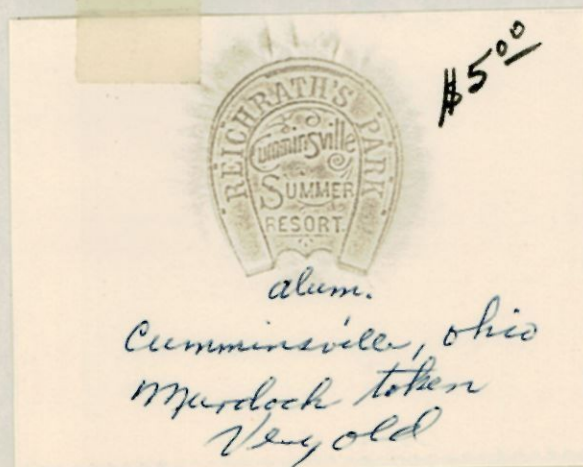 $5.00
REICHRATH'S PARK
Cumminsville
SUMMER
RESORT.
alum.
Cumminsville, Ohio
Murdock token
Very old